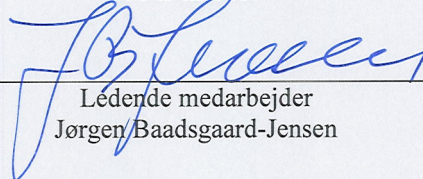 Ledende medarbejder
Jørgen Baadsgaard-Jensen